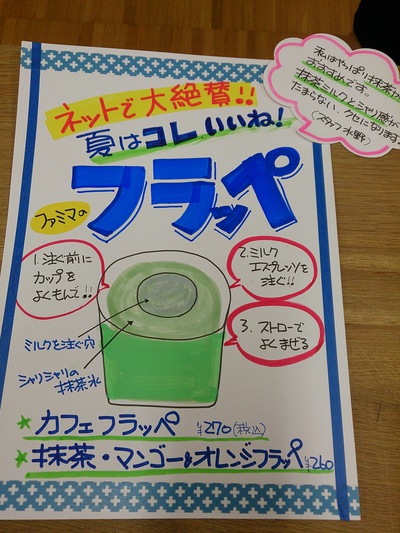 ネットで大絶賛!!
夏はコレいいね!
ファミマの
フラッペ
私はやっぱり抹茶が
おすすめです。
抹茶ミルクとシャリ感が
たまらない。クセになります
(スタッフ 水野)
1. 注ぐ前に
カップを
よくもんで!!
2. ミルク
エスプレッソを
注ぐ!!
3. ストローで
よくまぜる
ミルクを注ぐ穴
シャリシャリの
抹茶氷
★カフェフラッペ ¥270(税込)
★抹茶・マンゴー&オレンジフラッペ ¥260